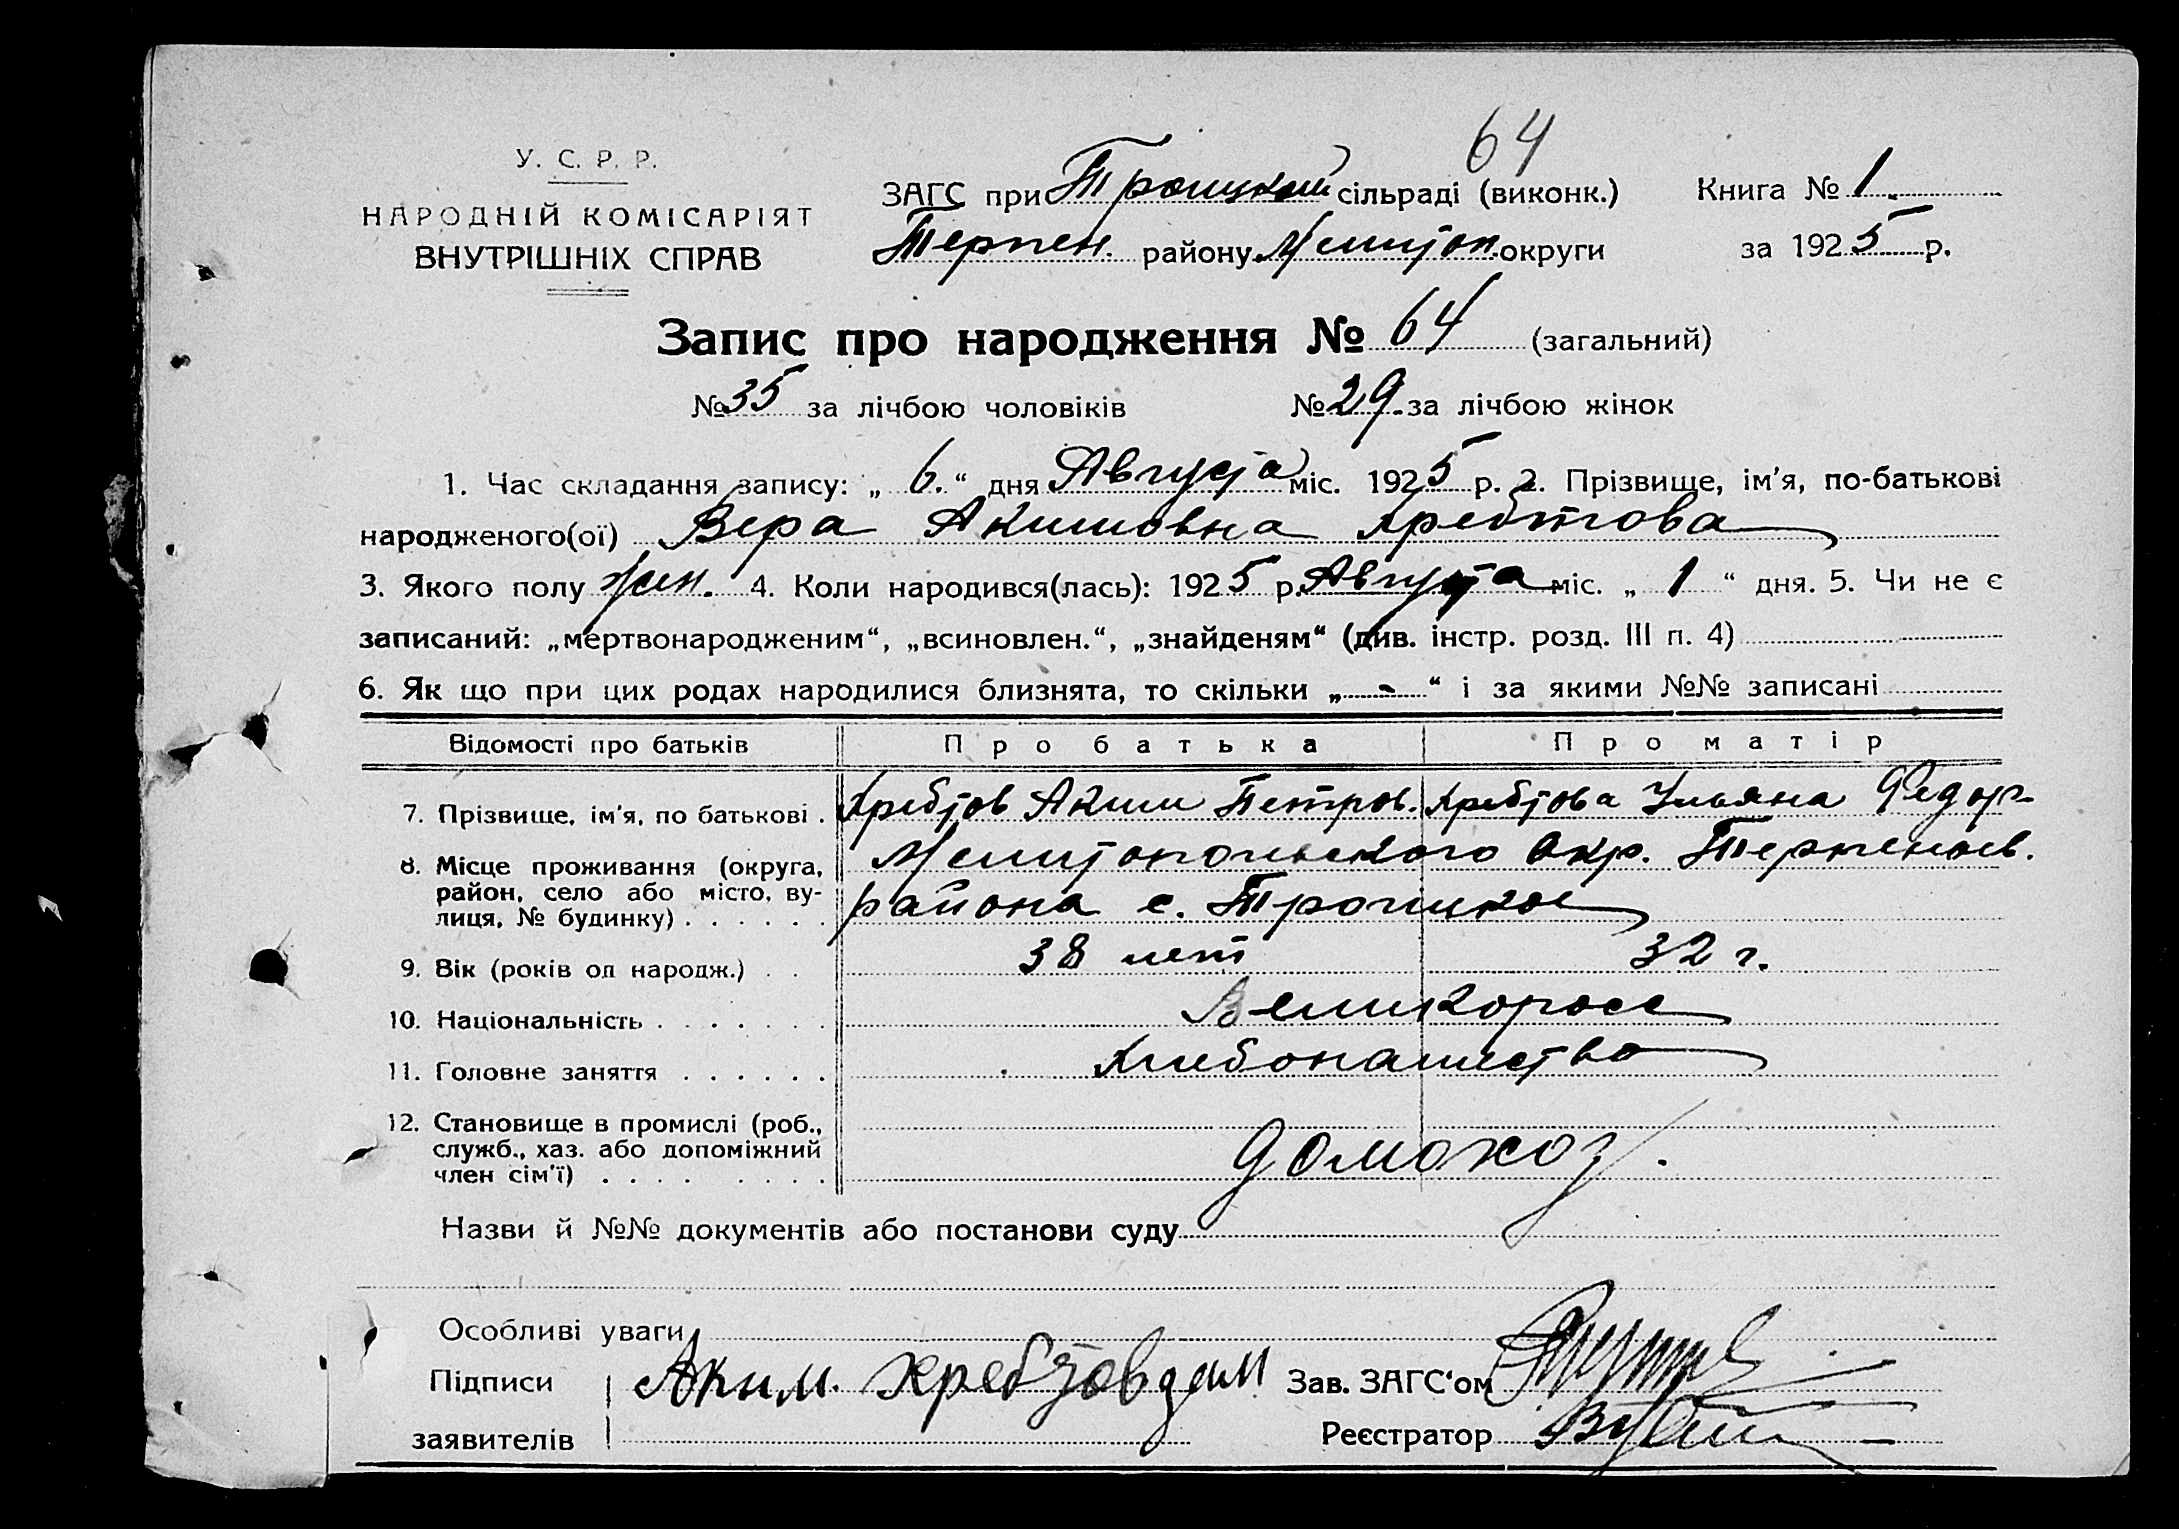 64
У. С. Р. Р.
НАРОДНІЙ КОМІСАРІЯТ
ВНУТРІШНІХ СПРАВ
ЗАГС при Троицкой сільраді (виконк.) Книга № 1.
Терпен. району Мелитоп. округи за 1925 р.
Запис про народження № 64 (загальний)
№ 35 за лічбою чоловіків № 29. за лічбою жінок
1. Час складання запису: „ 6. “ дня Августа міс. 1925 р. 2. Прізвище, ім'я, по-батькові
народженого(ої) Вера Акимовна Хребтова
3. Якого полу жен. 4. Коли народився(лась): 1925 р. Августа міс. „ 1 “ дня. 5. Чи не є
записаний: „мертвонародженим“, „всиновлен.“, „знайденям“ (див. інстр. розд. III п. 4)
6. Як що при цих родах народилися близнята, то скільки „ - “ і за якими №№ записані
Відомості про батьків Про батька Про матір
7. Прізвище, ім'я, по батькові . Хребтов Аким Петров. Хребтова Ульяна Федор.
8. Місце проживання (округа, Мелитопольского Окр. Терпеньев.
район, село або місто, ву- района с. Троицкое
лиця, № будинку) . . . . . .
9. Вік (років од народж.) . . 38 лет 32 г.
10. Національність . . . . . . . Великоросс
11. Головне заняття . . . . . . Хлебопашество
12. Становище в промислі (роб.,
служб., хаз. або допоміжний домохоз.
член сім'ї) . . . . . . . .
Назви й №№ документів або постанови суду
Особливі уваги
Підписи Аким. хребтов Зав. ЗАГС'ом
заявителів Реєстратор